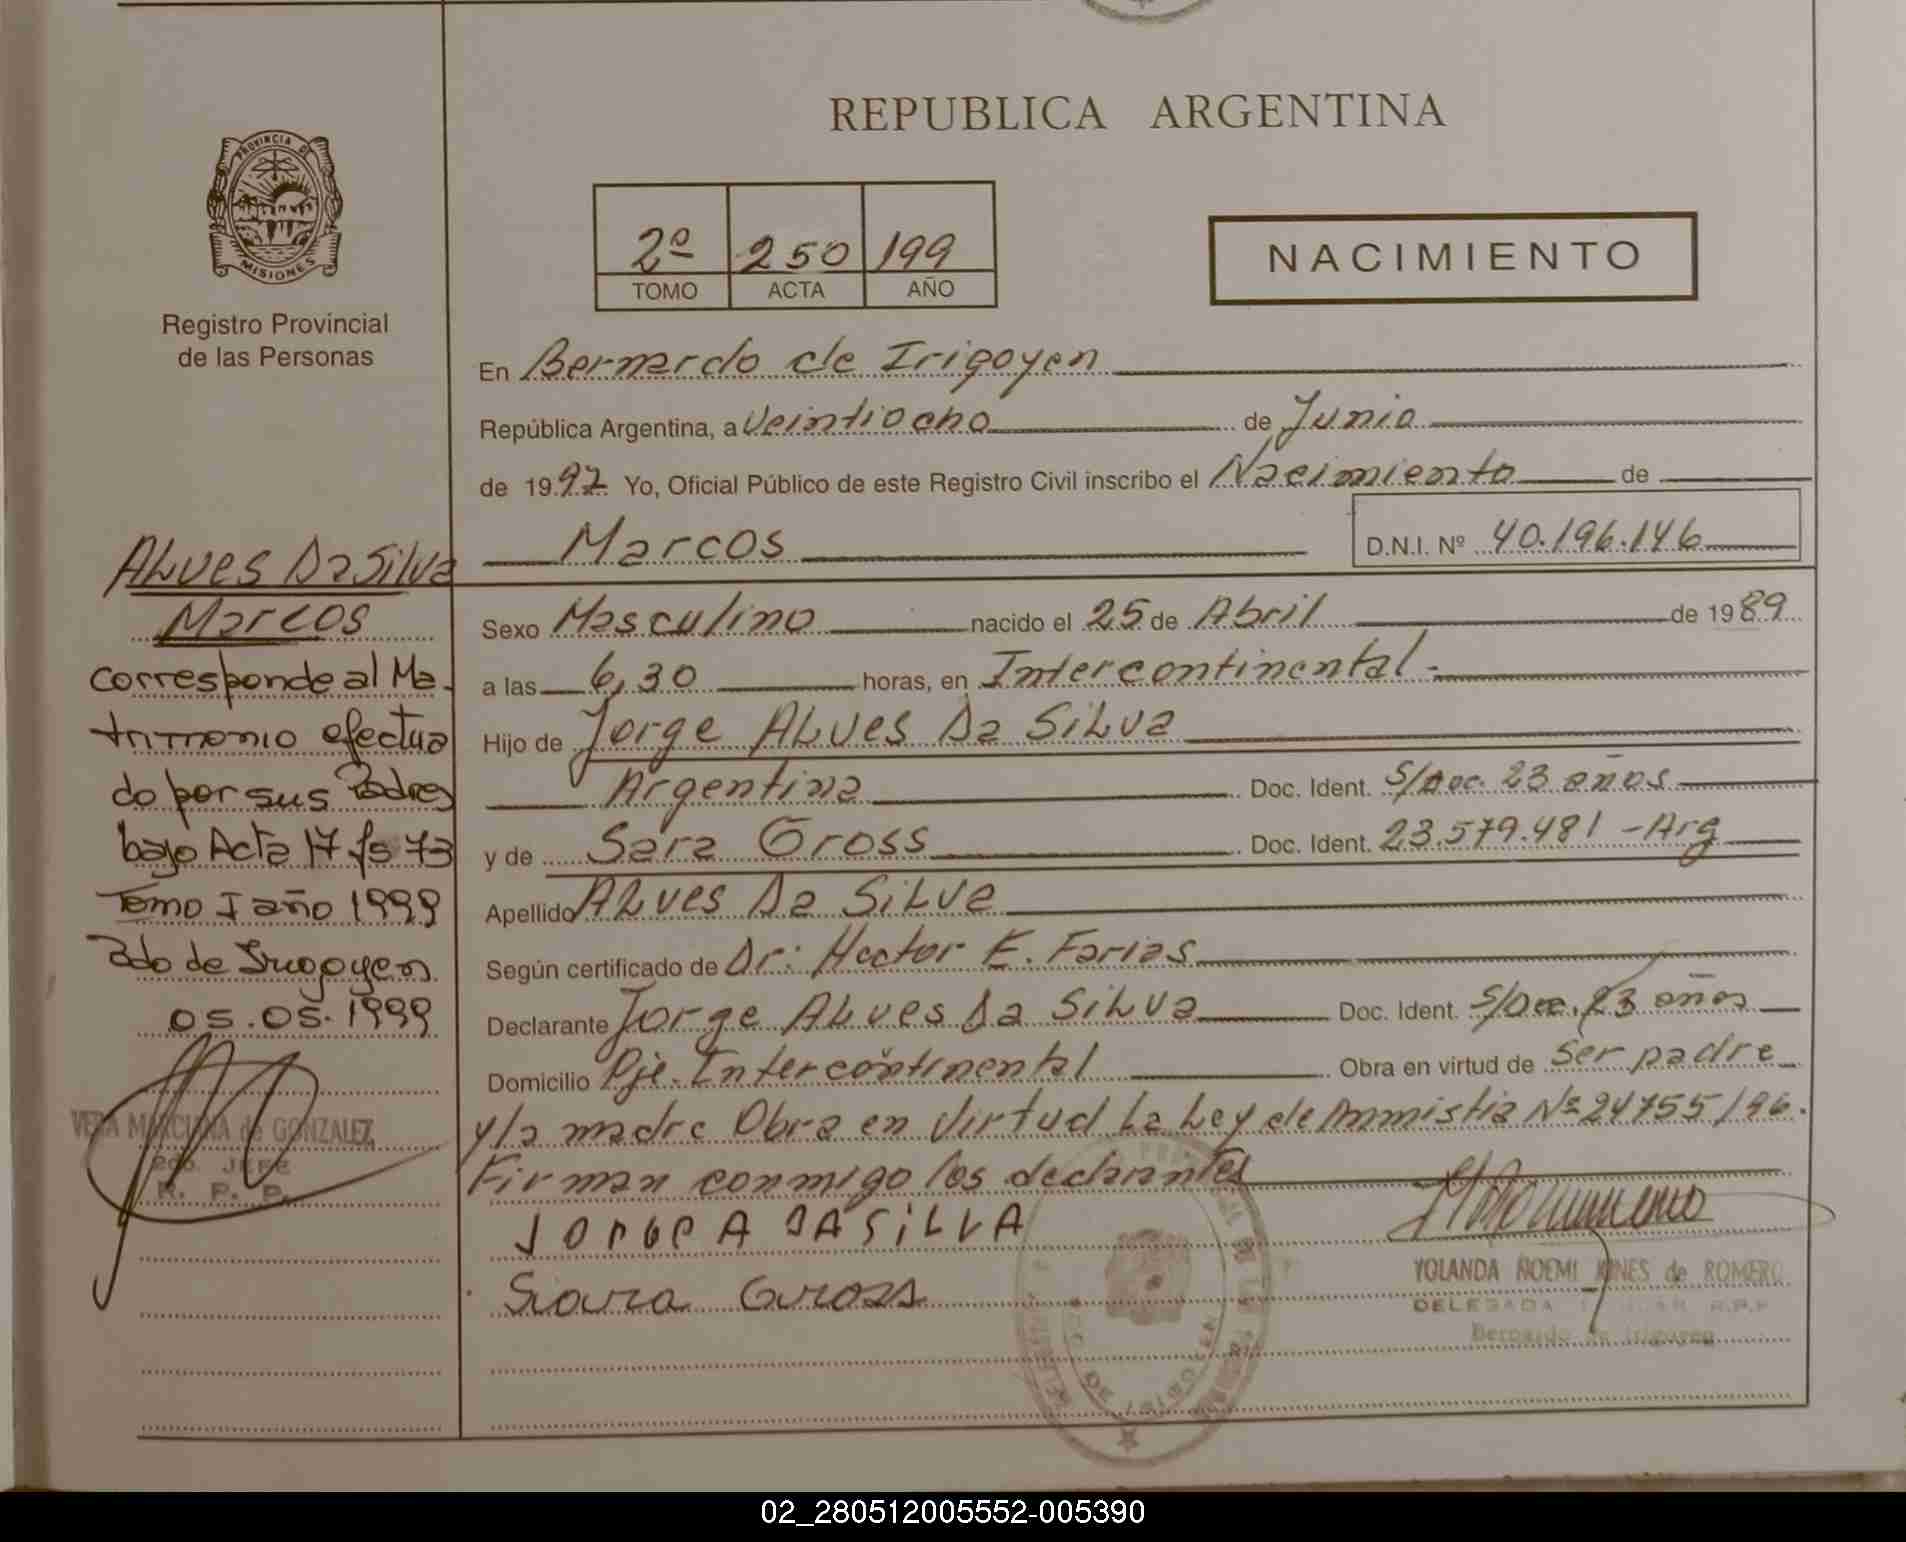 REPUBLICA ARGENTINA
PROVINCIA D
MISIONES
Registro Provincial
de las Personas
2º 250 199
TOMO ACTA AÑO
NACIMIENTO
En Bernardo de Irigoyen
República Argentina, a Veintiocho de Junio
de 1997 Yo, Oficial Público de este Registro Civil inscribo el Nacimiento de
Marcos D.N.I. Nº 40.196.146
Sexo Masculino nacido el 25 de Abril de 1989
a las 6,30 horas, en Intercontinental.-
Hijo de Jorge ALVES Da SiLVa
Argentina Doc. Ident. S/Doc. 23 años
y de Sara Gross Doc. Ident. 23.579.481 -Arg
Apellido ALVES Da SiLVa
Según certificado de Dr: Hector E. Farias
Declarante Jorge ALVES Da SiLVa Doc. Ident. S/Doc. 23 años
Domicilio Pje. Intercontinental Obra en virtud de Ser padre
y la madre Obra en Virtud La Ley de Ammistia Nº 24755/96.
Firman conmigo los declarantes
JORGE A DA SiLVA
Sara Gross
YOLANDA NOEMI de ROMERO
DELEGADA R.P.P.
Bernardo de Irigoyen
ALVES Da Silva
Marcos
corresponde al Ma
trimonio efectua
do por sus Padres
bajo Acta 17 fs 73
Tomo I año 1999
Bdo de Irigoyen
05.05.1999
VERA MARCIANA de GONZALEZ
2do. JEFE
R. P. P.
DE IRIGOYEN
02_280512005552-005390